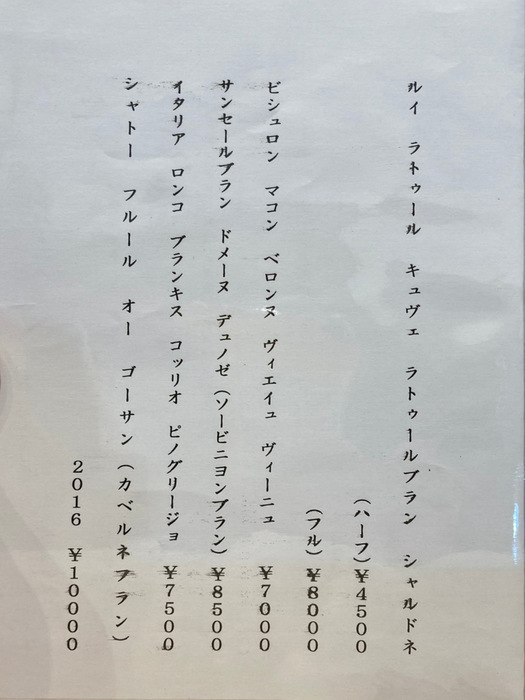 ルイ ラトゥール キュヴェ ラトゥールブラン シャルドネ
(ハーフ)¥4500
(フル)¥8000
ビシュロン マコン ベロンヌ ヴィエイュ ヴィーニュ ¥7000
サンセールブラン ドメーヌ デュノゼ(ソービニヨンブラン)¥8500
イタリア ロンコ ブランキス コッリオ ピノグリージョ ¥7500
シャトー フルール オー ゴーサン (カベルネフラン)
2016 ¥10000